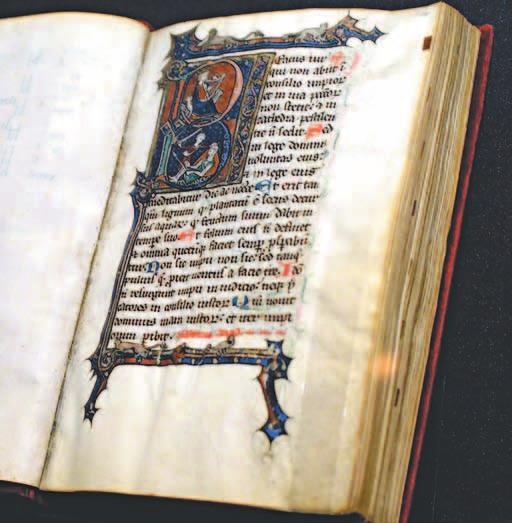 B eatus uir
qui non abiit i
consilio impior
et in uia peccor
non stetit & in
cathedra pestilen
tie n sedit Sed
in lege domini
uoluntas eius
& in lege eius
meditabitur die ac nocte Et erit tan
qm lignum q plantatu e secus decur
sus aquar q fructum suum dabit in
tempe suo Et folium eius n defluet
& omnia quecuq faciet semp pspabu
tur Non sic impii non sic sed tanq
puluis que uentus a facie tre Ido
n resurgunt impii in iudicio neq p
catores in consilio iustor Qm nouit
dominus uiam iustor et iter impi
orum pibit